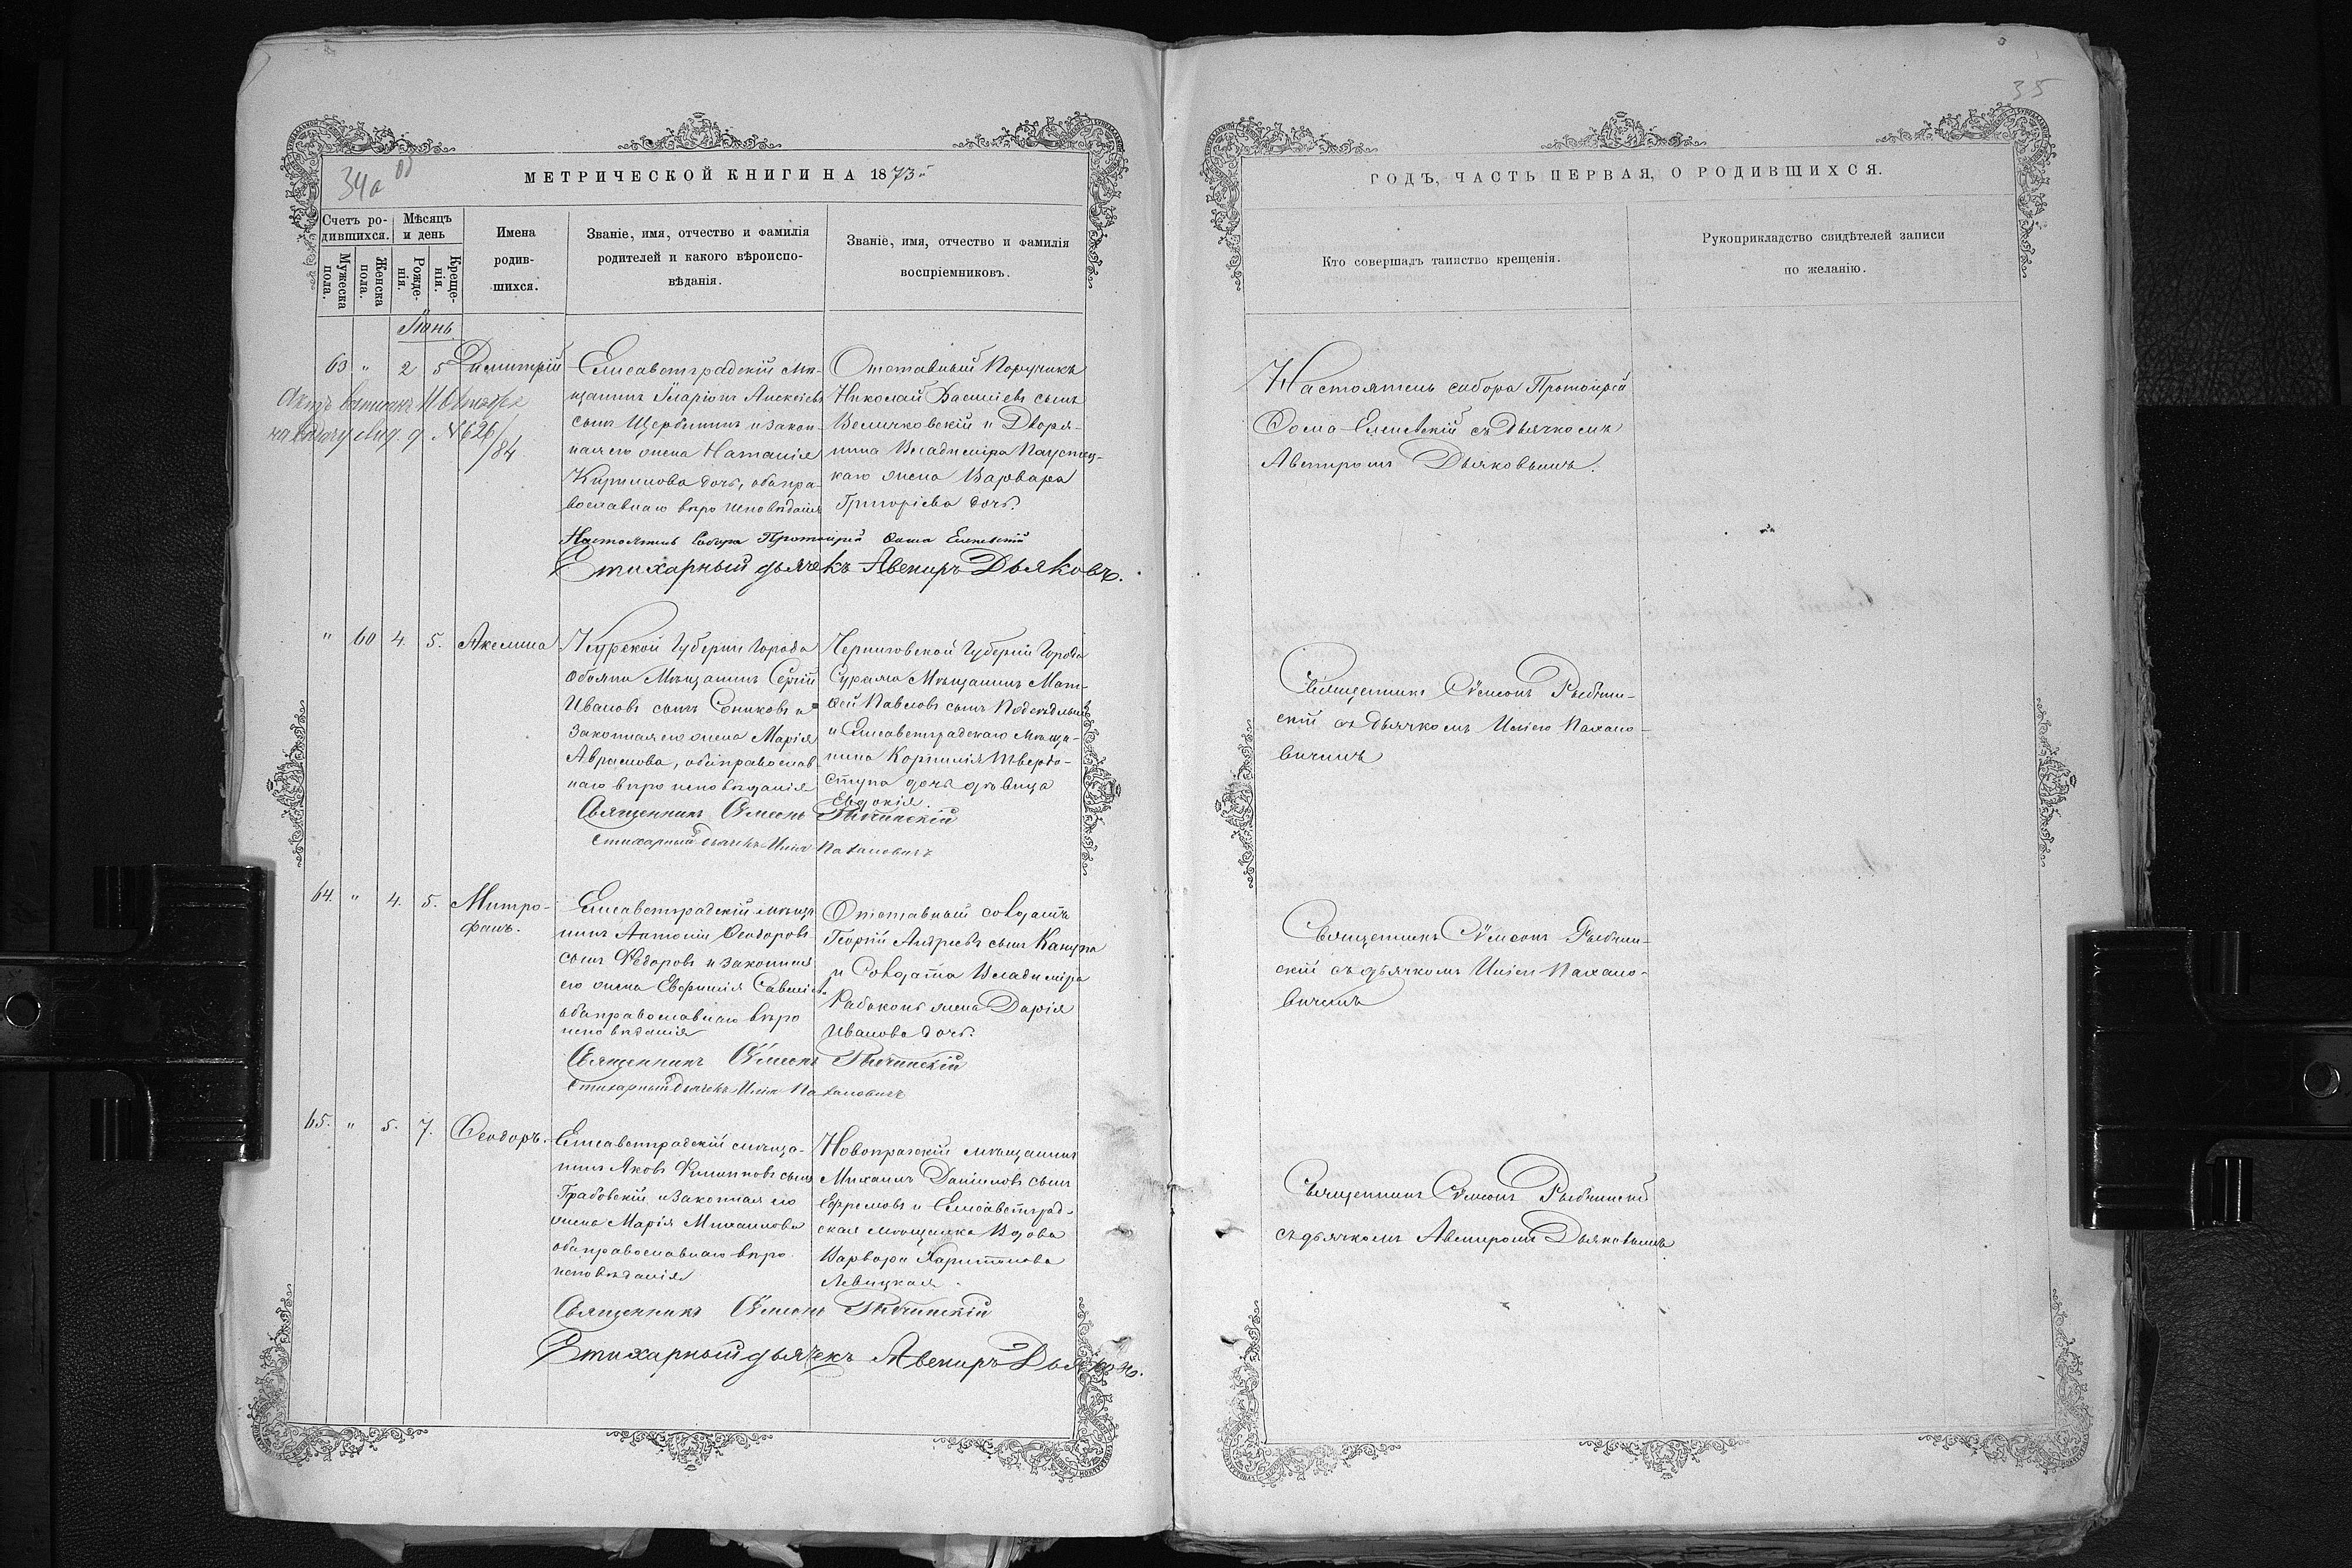 34а об
МЕТРИЧЕСКОЙ КНИГИ НА 1873й
Счетъ родившихся.
Мѣсяцъ и день
Мужеска пола.
Женска пола.
Рожденія.
Крещенія.
Имена
родив-
шихся.
Званіе, имя, отчество и фамилія
родителей и какого вѣроиспо-
вѣданія.
Званіе, имя, отчество и фамилія
воспріемниковъ.
Іюнь
63 " 2 5 Димитрій
на выдачу № 626/84
Елисаветградскій мѣ-
щанинъ Иларіонъ Алексѣевъ
сынъ Щербининъ и закон-
ная его жена Наталія
Кирилова дочь, оба пра-
вославнаго вѣроисповѣданія
Отставный Поручикъ
Николай Василіевъ сынъ
Величковскій и Дворя-
нина Владиміра
жена Варвара
Григоріева дочь.
Настоятель Собора Протоіерей Фома
Стихарный дьячекъ Авениръ Дьяковъ.
" 60 4. 5. Акелина
Курской Губерніи Города
Обояни Мѣщанинъ Сергій
Ивановъ сынъ и
Законная его жена Марія
Аврамова, оба православ-
наго вѣроисповѣданія
Черниговской Губерніи Города
Суража Мѣщанинъ Мат-
ѳей Павловъ сынъ
и Елисаветградскаго мѣща-
нина Корнилія Твердо-
ступа дочь дѣвица
Евдокія.
Священникъ Сѵмеонъ Рыбчинскій
Стихарный дьячекъ Илія Пахановичъ
64. " 4. 5. Митро-
фанъ.
Елисаветградскій мѣща-
нинъ Антоній Ѳеодоровъ
сынъ Федоровъ и законная
его жена Евфимія
оба православнаго вѣро
исповѣданія
Отставный солдатъ
Георгій Андреевъ сынъ
и Солдата Владиміра
жена Дарія
Иванова дочь.
Священникъ Сѵмеонъ Рыбчинскій
Стихарный дьячекъ Илія Пахановичъ
65. " 5. 7. Ѳеодоръ.
Елисаветградскій мѣща-
нинъ Яковъ Филипповъ сынъ
Грабовскій и Законная его
жена Марія Михаилова
оба православнаго вѣро
исповѣданія
Новопражскій мѣщанинъ
Михаилъ Даніиловъ сынъ
Ефремовъ и Елисаветград-
ская мѣщанка Вдова
Варвара Харитонова
Левицкая.
Священникъ Сѵмеонъ Рыбчинскій
Стихарный дьячекъ Авениръ Дьяковъ.
35
ГОДЪ, ЧАСТЬ ПЕРВАЯ, О РОДИВШИХСЯ.
Кто совершалъ таинство крещенія.
Рукоприкладство свидѣтелей записи
по желанію.
Настоятель собора Протоіерей
Фома съ дьячкомъ
Авениромъ Дьяковымъ.
Священникъ Сѵмеонъ Рыбчин-
скій съ дьячкомъ Иліею Пахано-
вичемъ
Священникъ Сѵмеонъ Рыбчин-
скій съ дьячкомъ Иліею Пахано-
вичемъ
Священникъ Сѵмеонъ Рыбчинскій
съ дьячкомъ Авениромъ Дьяковымъ